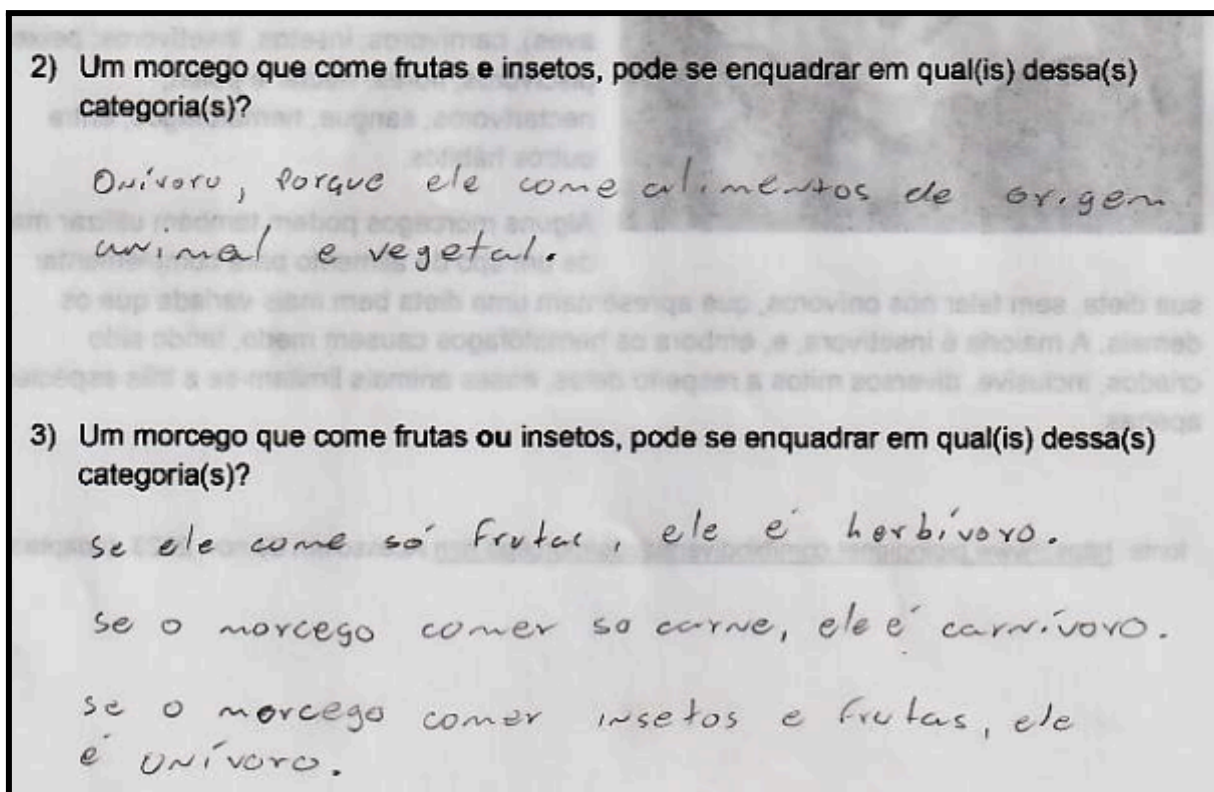 2) Um morcego que come frutas e insetos, pode se enquadrar em qual(is) dessa(s)
categoria(s)?
Onívoro, porque ele come alimentos de origem
animal e vegetal.
3) Um morcego que come frutas ou insetos, pode se enquadrar em qual(is) dessa(s)
categoria(s)?
se ele come só frutas, ele é herbívoro.
se o morcego comer so carne, ele é carnívoro.
se o morcego comer insetos e frutas, ele
é onívoro.